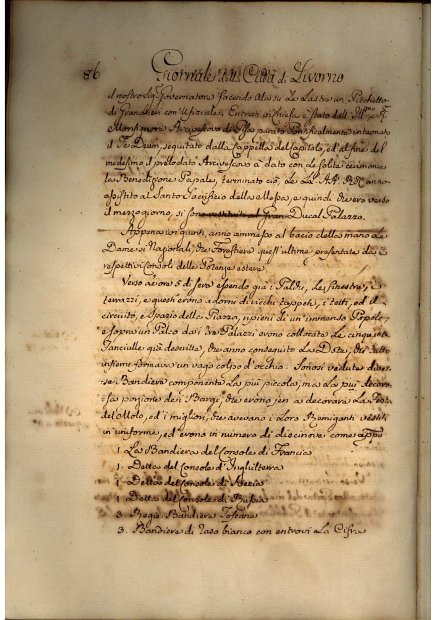 86 Giornale della Città di Livorno
il nostro Sig. Governatore facendo ala su le Lastre un Picchetto
di Granatieri con Uffiziale. Entrati in chiesa è stato dall'
Monsignore Arcivescovo di Pisa parato Pontificalmente intuonato
il Te Deum, seguitato dalla Cappella del Capitolo, ed al fine del
medesimo il prelodato Arcivescovo à dato con le solite cerimonie
la Benedizione Papale, terminato ciò, Le LL. AA. RR. anno
assistito al Santo Sacrifizio della Messa, e quindi che era verso
il mezzogiorno, si sono restituiti al Gran Ducal Palazzo.
Appena ivi giunti, anno ammesso al bacio della mano le
Dame sì Nazionali, che Forastiere quest'ultime presentate da i
respettivi Consoli delle Potenze estere
Verso le ore 5 di sera essendo già i Palchi, le finestre, i
terrazzi, e questi erano adorni di ricchi tappeti, i tetti, ed il
circuito, e spazio della Piazza, ripieni di un'immenso Popolo,
e sopra un Palco da i tre Palazzi erano collocate le cinquanta
Fanciulle già descritte, che anno conseguito la Dote, che tutto
insieme formava un vago colpo d'occhio. Sonosi vedute diver
se Bandiere componenti la più piccola, ma la più decoro
sa porzione dei Bargi, che erano jeri a decorare la
del Molo, ed i migliori, che avevano i loro Remiganti vestiti
in uniforme, ed erano in numero di diecinove come app.o
1. La Bandiera del Console di Francia
1. Detta del Console d'Inghilterra
1. Detta del Console di Svezia
1. Detta del Console di Russia
3. Regie Bandiere Toscane
3. Bandiere di raso bianco con entrovi la Cifra